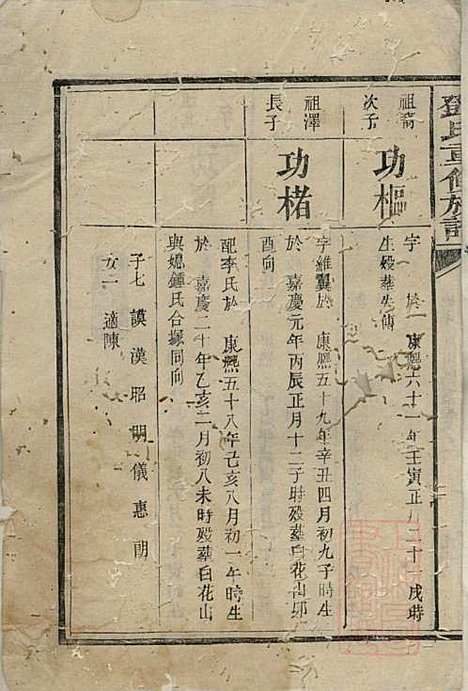 鄧氏重修族譜
祖裔
次子
功樞
字 於 康熙六十一年壬寅正月二十 戌時
生殁葬失傳
祖澤
長子
功楮
字維翼於 康熙五十九年辛丑四月初九子時生
於 嘉慶元年丙辰正月十二子時殁葬白花山卯
酉向
配李氏於 康熙五十八年己亥八月初一午時生
於 嘉慶二十年乙亥二月初八未時殁葬白花山
與媳鍾氏合塚同向
子七 謨 漢 昭 明 儀 惠 朝
女一 適陳